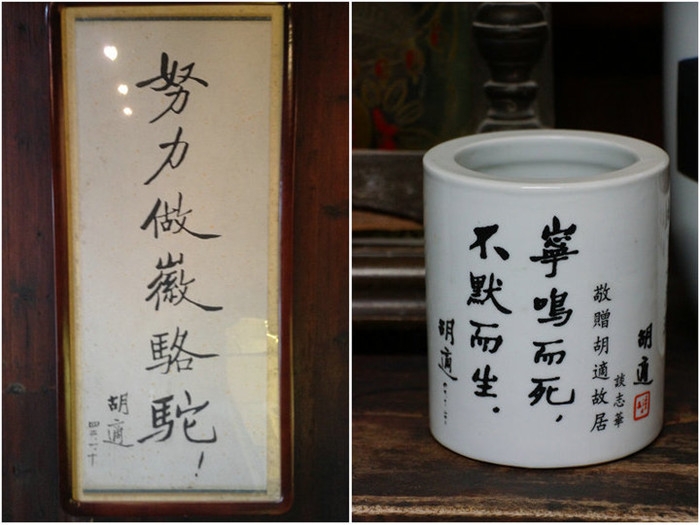 努力做徽駱駝！
胡適
胡適
敬贈胡適故居
談志華
寧鳴而死，
不默而生。
胡適